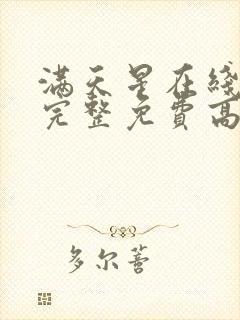 满天星在线
完整免费高
多尔萻